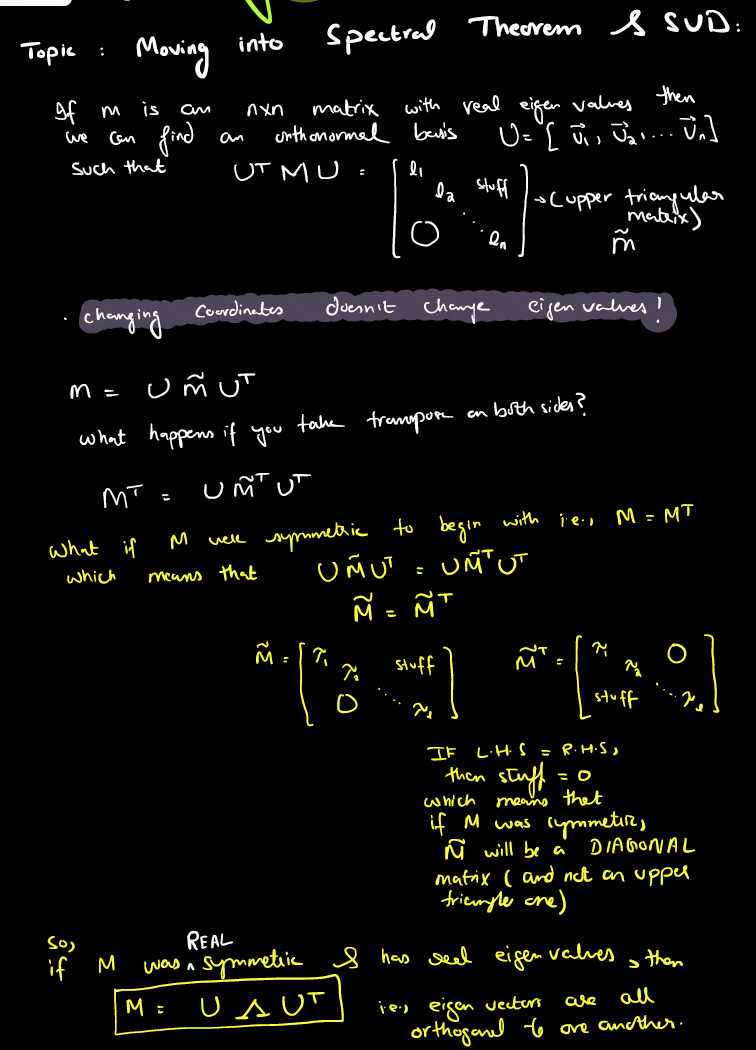 Topic : Moving into Spectral Theorem & SVD:
If m is an nxn matrix with real eigen values then
we can find an orthonormal basis U = [ v⃗₁, v⃗₂, ... v⃗ₙ]
such that Uᵀ M U = [ l₁ l₂ stuff 0 ⋱ lₙ ] → (upper triangular matrix) m̃
. changing coordinates doesn't change eigen values!
m = U m̃ Uᵀ
what happens if you take transpose on both sides?
Mᵀ = U M̃ᵀ Uᵀ
What if M were symmetric to begin with i.e., M = Mᵀ
which means that U M̃ Uᵀ = U M̃ᵀ Uᵀ
M̃ = M̃ᵀ
M̃ = [ λ₁ λ₂ stuff 0 ⋱ ] M̃ᵀ = [ λ₁ λ₂ 0 stuff ⋱ ]
IF L.H.S = R.H.S,
then stuff = 0
which means that
if M was symmetric,
M̃ will be a DIAGONAL
matrix ( and not an upper
triangle one)
So,
if M was ∧ REAL symmetric & has real eigen values, then
M = U Λ Uᵀ i.e., eigen vectors are all
orthogonal to one another.